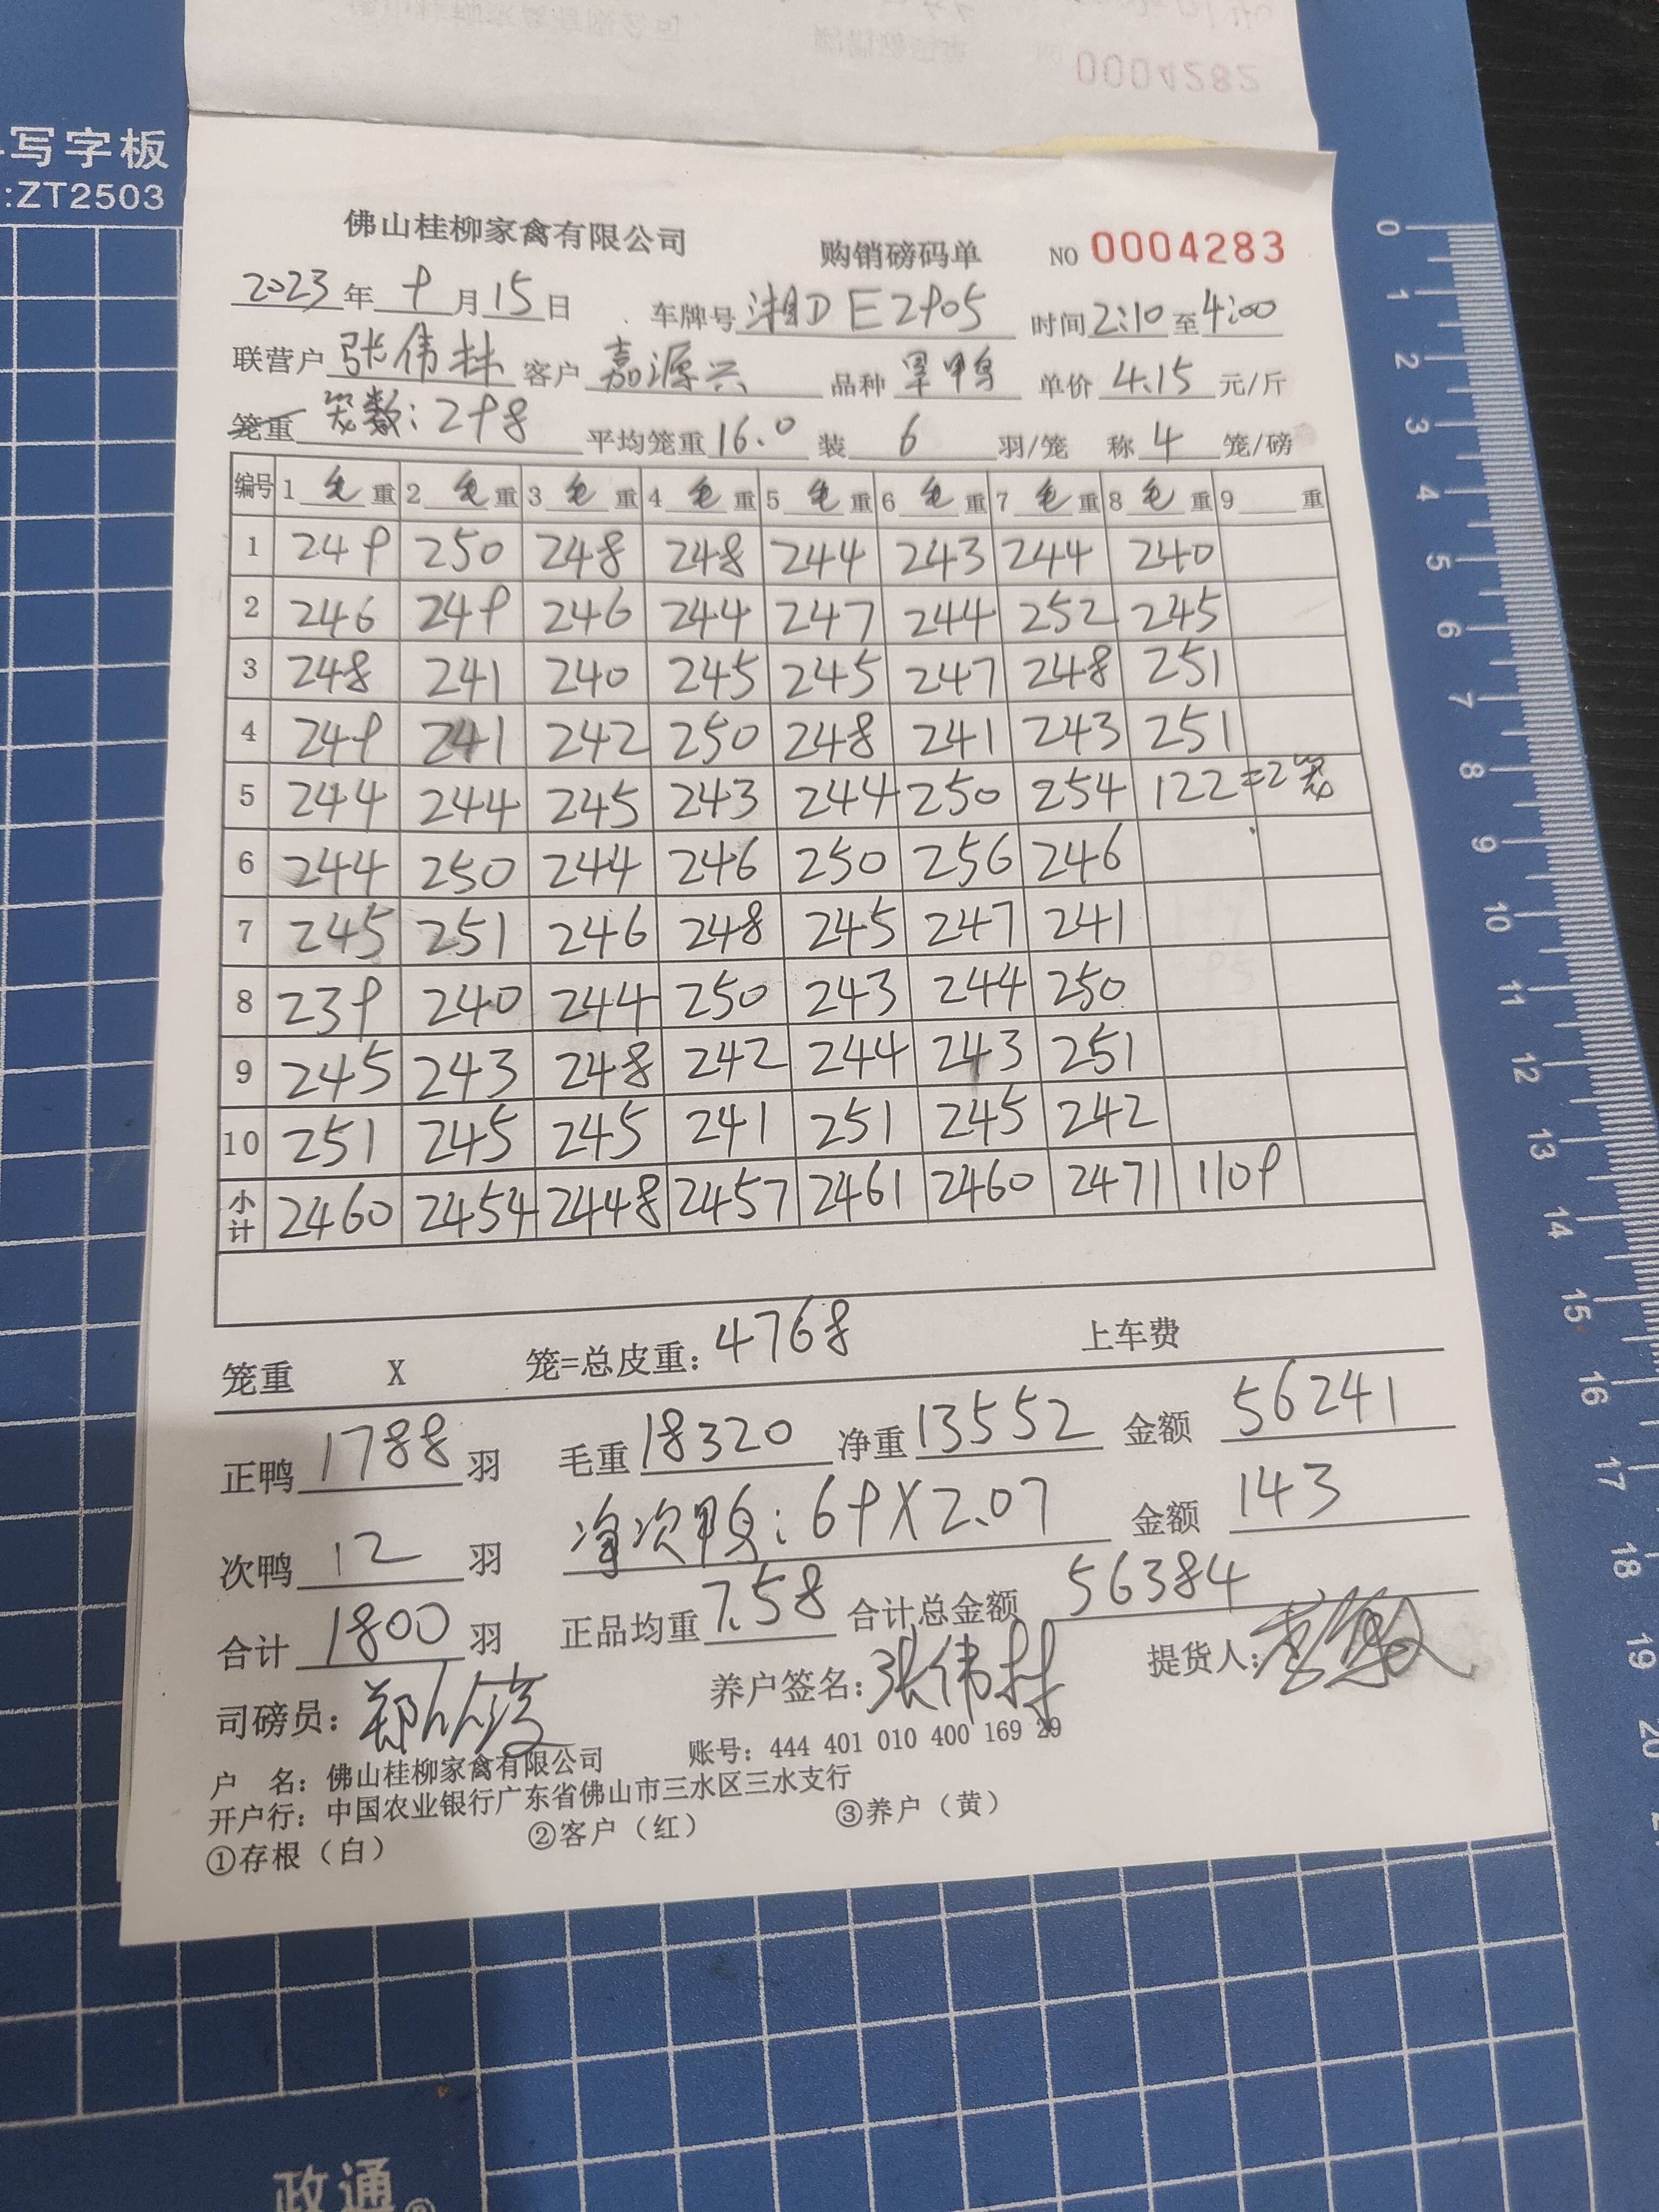 写字板
:ZT2503
0004282
佛山桂柳家禽有限公司 购销磅码单 NO 0004283
2023年 9月15日 车牌号 湘DE2905 时间2:10至4:00
联营户 张伟林 客户 嘉源兴 品种 旱鸭 单价 4.15 元/斤
笼重 笼数:298 平均笼重16.0 装 6 羽/笼 称 4 笼/磅
编号 1 毛 重 2 毛 重 3 毛 重 4 毛 重 5 毛 重 6 毛 重 7 毛 重 8 毛 重 9 重
1 249 250 248 248 244 243 244 240
2 246 249 246 244 247 244 252 245
3 248 241 240 245 245 247 248 251
4 249 241 242 250 248 241 243 251
5 244 244 245 243 244 250 254 122=2笼
6 244 250 244 246 250 256 246
7 245 251 246 248 245 247 241
8 239 240 244 250 243 244 250
9 245 243 248 242 244 243 251
10 251 245 245 241 251 245 242
小计 2460 2454 2448 2457 2461 2460 2471 1109
笼重 X 笼=总皮重: 4768 上车费
正鸭 1788 羽 毛重 18320 净重 13552 金额 56241
次鸭 12 羽 净次鸭:69X2.07 金额 143
合计 1800 羽 正品均重 7.58 合计总金额 56384
司磅员: 养户签名:张伟林 提货人:
户 名: 佛山桂柳家禽有限公司 账号: 444 401 010 400 169 29
开户行: 中国农业银行广东省佛山市三水区三水支行
①存根(白) ②客户(红) ③养户(黄)
0
1
2
3
4
5
6
7
8
9
10
11
12
13
14
15
16
17
18
19
20
政通®